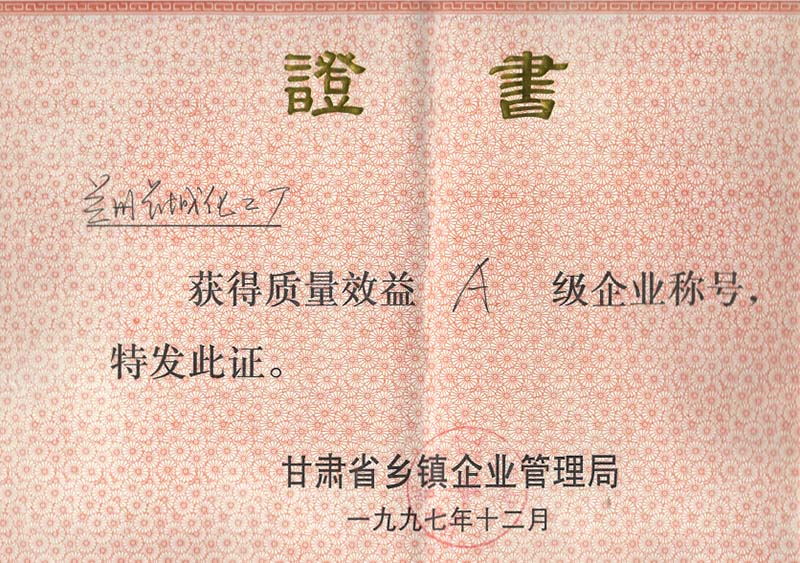 證書
兰州黄城化工厂
获得质量效益 A 级企业称号，
特发此证。
甘肃省乡镇企业管理局
一九九七年十二月